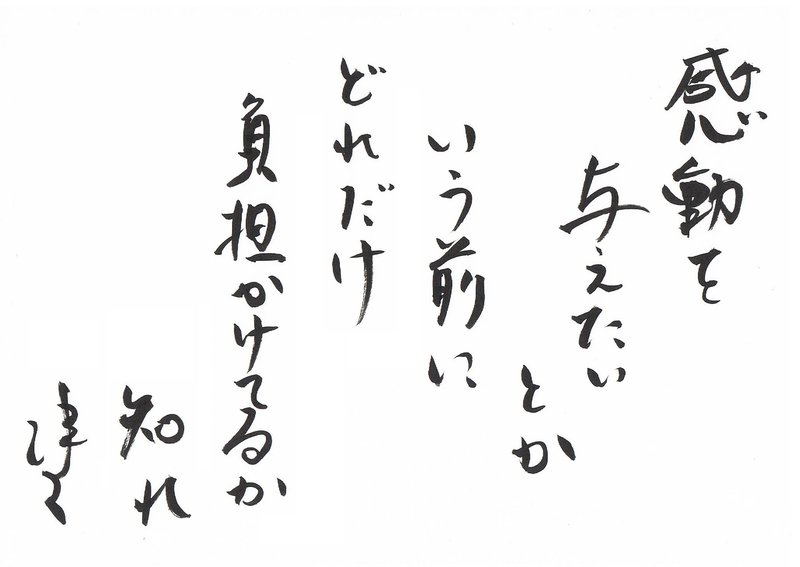 感動を
与えたい
とか
いう前に
どれだけ
負担かけてるか
知れ